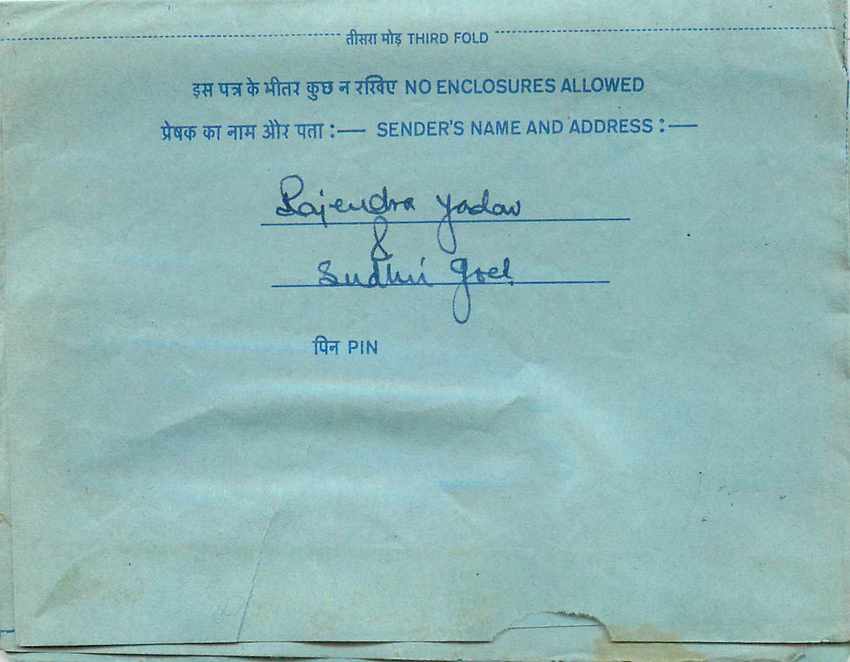 तीसरा मोड़ THIRD FOLD
इस पत्र के भीतर कुछ न रखिए NO ENCLOSURES ALLOWED
प्रेषक का नाम और पता :— SENDER'S NAME AND ADDRESS :—
Rajendra Yadav
&
Sudhir Goel
पिन PIN